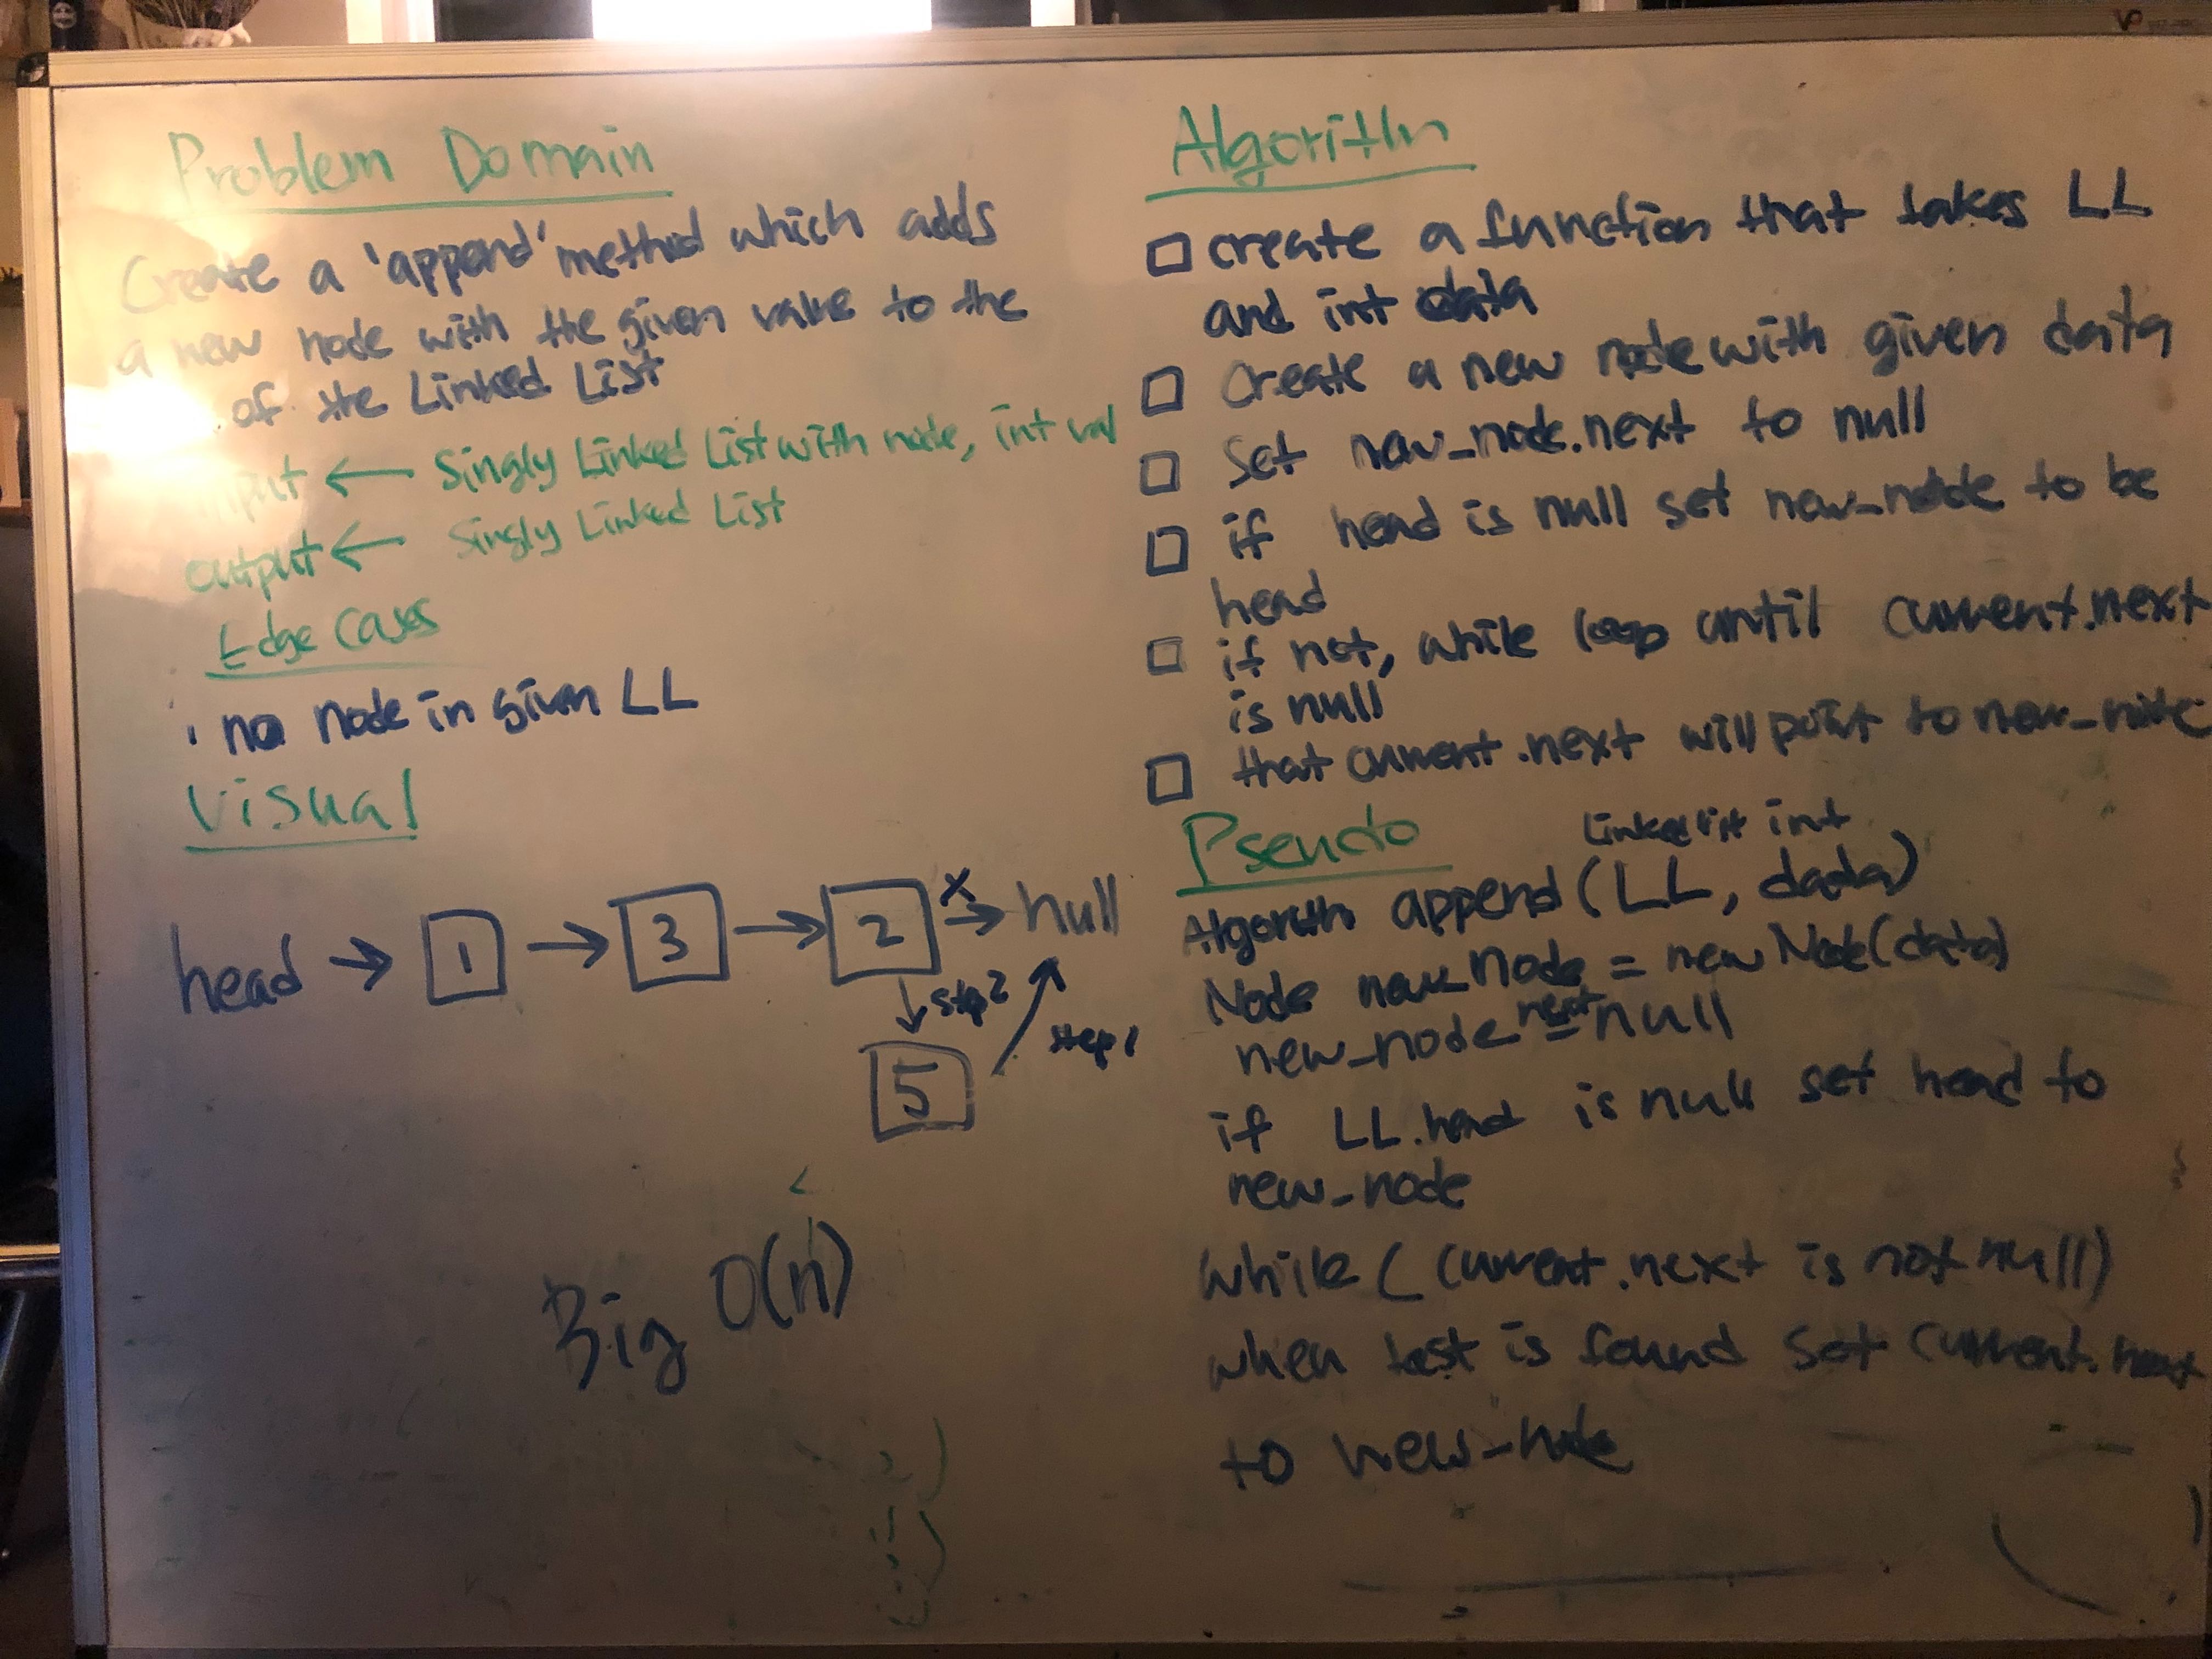 Problem Domain
Create a 'append' method which adds
a new node with the given value to the
of the Linked List
input ← Singly Linked List with node, int val
output ← Singly Linked List
Edge Cases
no node in given LL
Visual
head → 1 → 3 → 2 x → null
step 2
step 1
5
Big O(n)
Algorithm
create a function that takes LL
and int data
Create a new node with given data
Set new_node.next to null
if head is null set new_node to be
head
if not, while loop until current.next
is null
that current.next will point to new_node
Pseudo
Linked list int
Algorith append (LL, data)
Node new_node = new Node(data)
new_node next = null
if LL.head is null set head to
new_node
while ( current.next is not null)
when last is found set current.next
to new_node